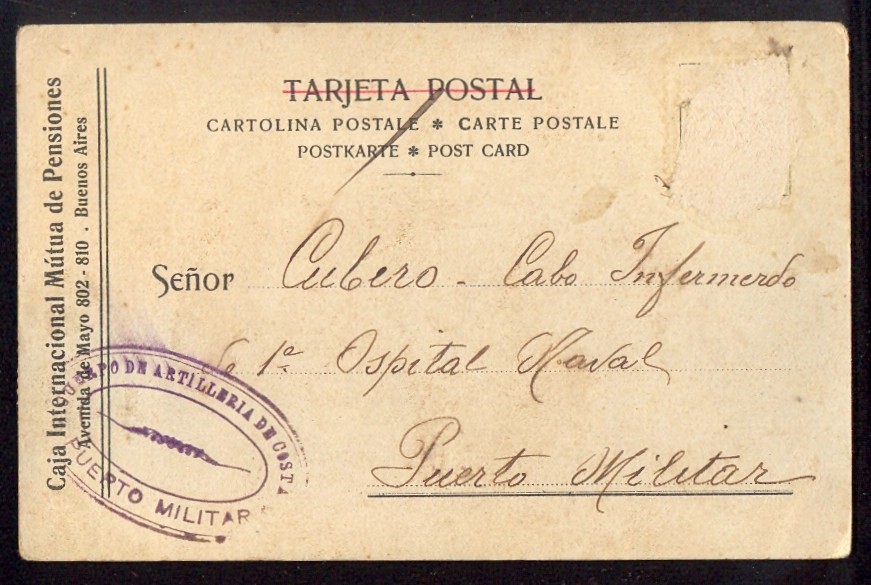 TARJETA POSTAL
CARTOLINA POSTALE * CARTE POSTALE
POSTKARTE * POST CARD
Caja Internacional Mútua de Pensiones
Avenida de Mayo 802 - 810 . Buenos Aires
Señor Cubero - Cabo Infermerdo
de 1ª Ospital Naval
Puerto Militar
CUERPO DE ARTILLERIA DE COSTA
PUERTO MILITAR